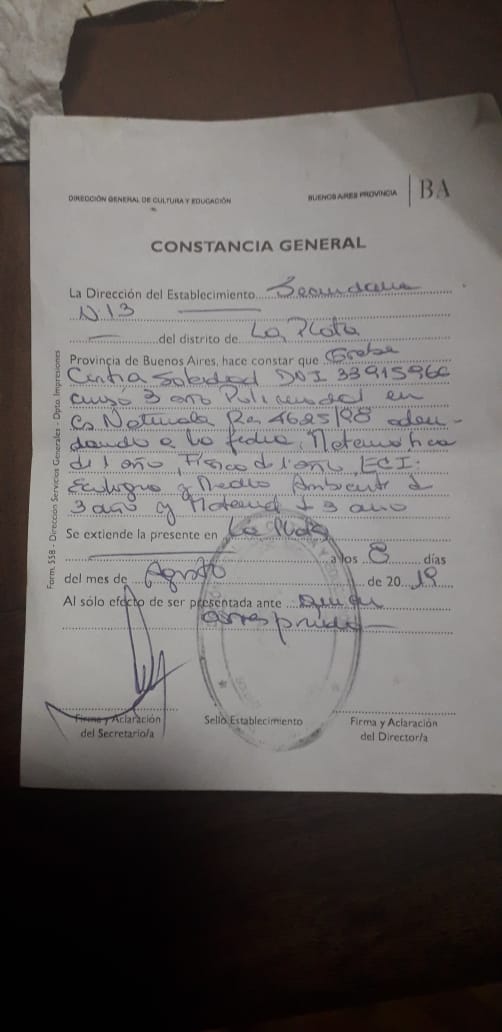 DIRECCIÓN GENERAL DE CULTURA Y EDUCACIÓN
BUENOS AIRES PROVINCIA
BA
CONSTANCIA GENERAL
La Dirección del Establecimiento Secundaria
N. 13
del distrito de La Plata
Provincia de Buenos Aires, hace constar que
Cintia Soledad DNI 33915966
curso 3 año Polimodal en
Cs Naturales Res 4625/98 aden-
dando a la fecha, Matematica
de 1 año, Fisica de 1 año, ECI:
Ecologia y Medio Ambiente de
3 año y Matemat 3 año
Se extiende la presente en La Plata
a los 8 días
del mes de Agosto de 2019
Al sólo efecto de ser presentada ante quien
corresponda
Firma y Aclaración
del Secretario/a
Sello Establecimiento
Firma y Aclaración
del Director/a
Form. 558 - Dirección Servicios Generales - Dpto. Impresiones